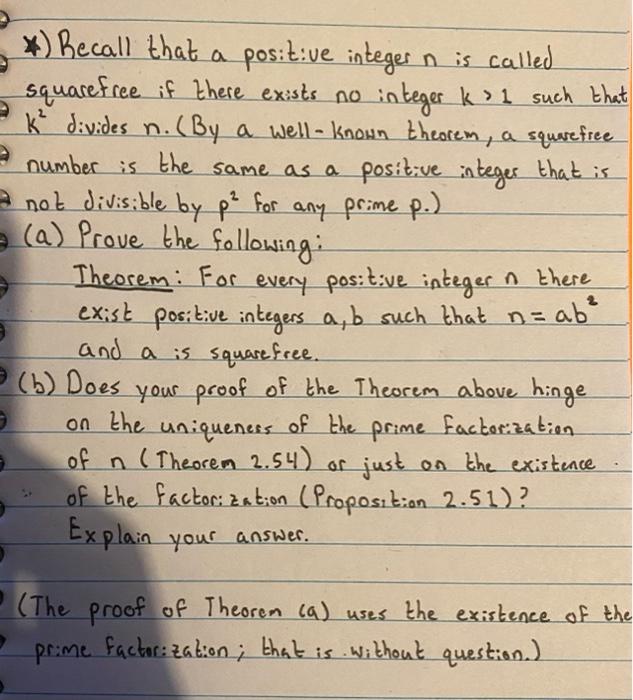 *) Recall that a positive integer n is called
squarefree if there exists no integer k > 1 such that
k² divides n. (By a well-known theorem, a squarefree
number is the same as a positive integer that is
not divisible by p² for any prime p.)
(a) Prove the following:
Theorem: For every positive integer n there
exist positive integers a, b such that n = ab²
and a is squarefree.
(b) Does your proof of the Theorem above hinge
on the uniqueness of the prime factorization
of n (Theorem 2.54) or just on the existence
of the factorization (Proposition 2.51)?
Explain your answer.
(The proof of Theorem (a) uses the existence of the
prime factorization; that is without question.)